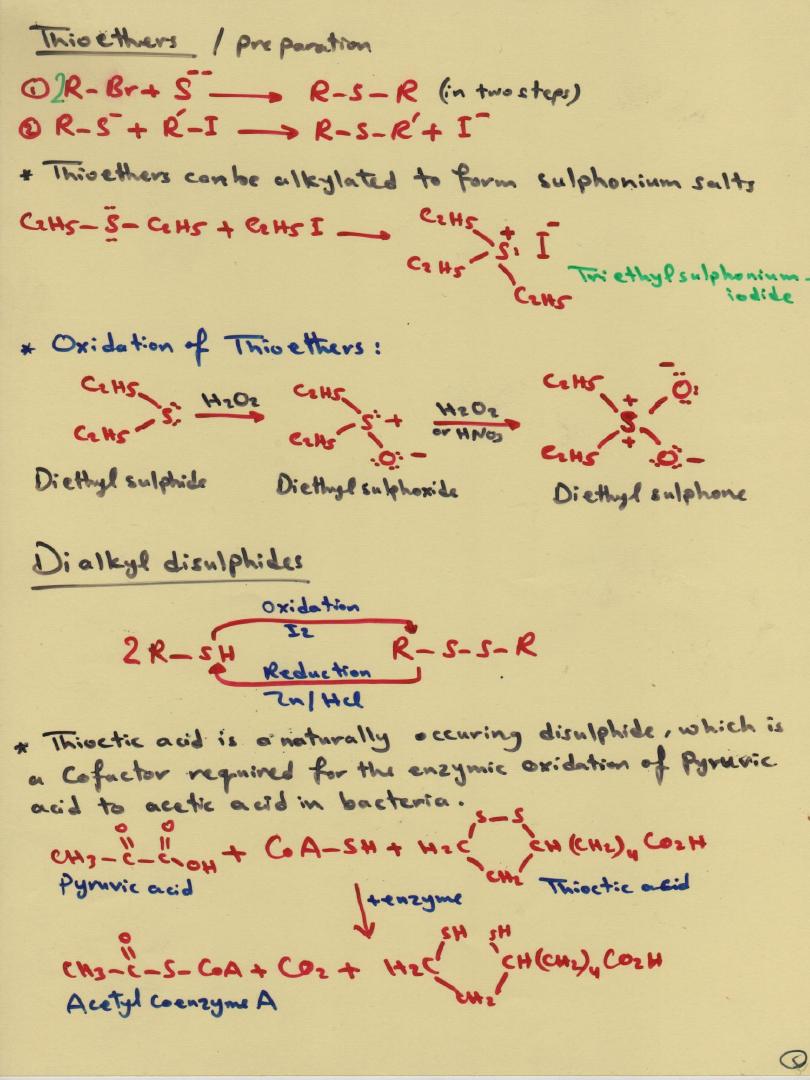 Thioethers / preparation
① 2R-Br + S⁻⁻ ⟶ R-S-R (in two steps)
② R-S⁻ + R'-I ⟶ R-S-R' + I⁻
* Thioethers can be alkylated to form sulphonium salts
C2H5-S-C2H5 + C2H5I ⟶ C2H5 C2H5 C2H5 S⁺: I⁻
Triethylsulphonium-
iodide
* Oxidation of Thioethers:
C2H5 C2H5 S: H2O2 ⟶ C2H5 C2H5 S:⁺ :O:⁻ H2O2 or HNO3 ⟶ C2H5 C2H5 S⁺⁺ :O:⁻ :O:⁻
Diethyl sulphide Diethyl sulphoxide Diethyl sulphone
Dialkyl disulphides
Oxidation
I2
2 R-SH R-S-S-R
Reduction
Zn/HCl
* Thioctic acid is a naturally occuring disulphide, which is
a Cofactor required for the enzymic oxidation of Pyruvic
acid to acetic acid in bacteria.
O O S-S
CH3-C-C-OH + CoA-SH + H2C CH(CH2)4CO2H
CH2
Pyruvic acid Thioctic acid
+enzyme
O SH SH
CH3-C-S-CoA + CO2 + H2C CH(CH2)4CO2H
CH2
Acetyl Coenzyme A
5